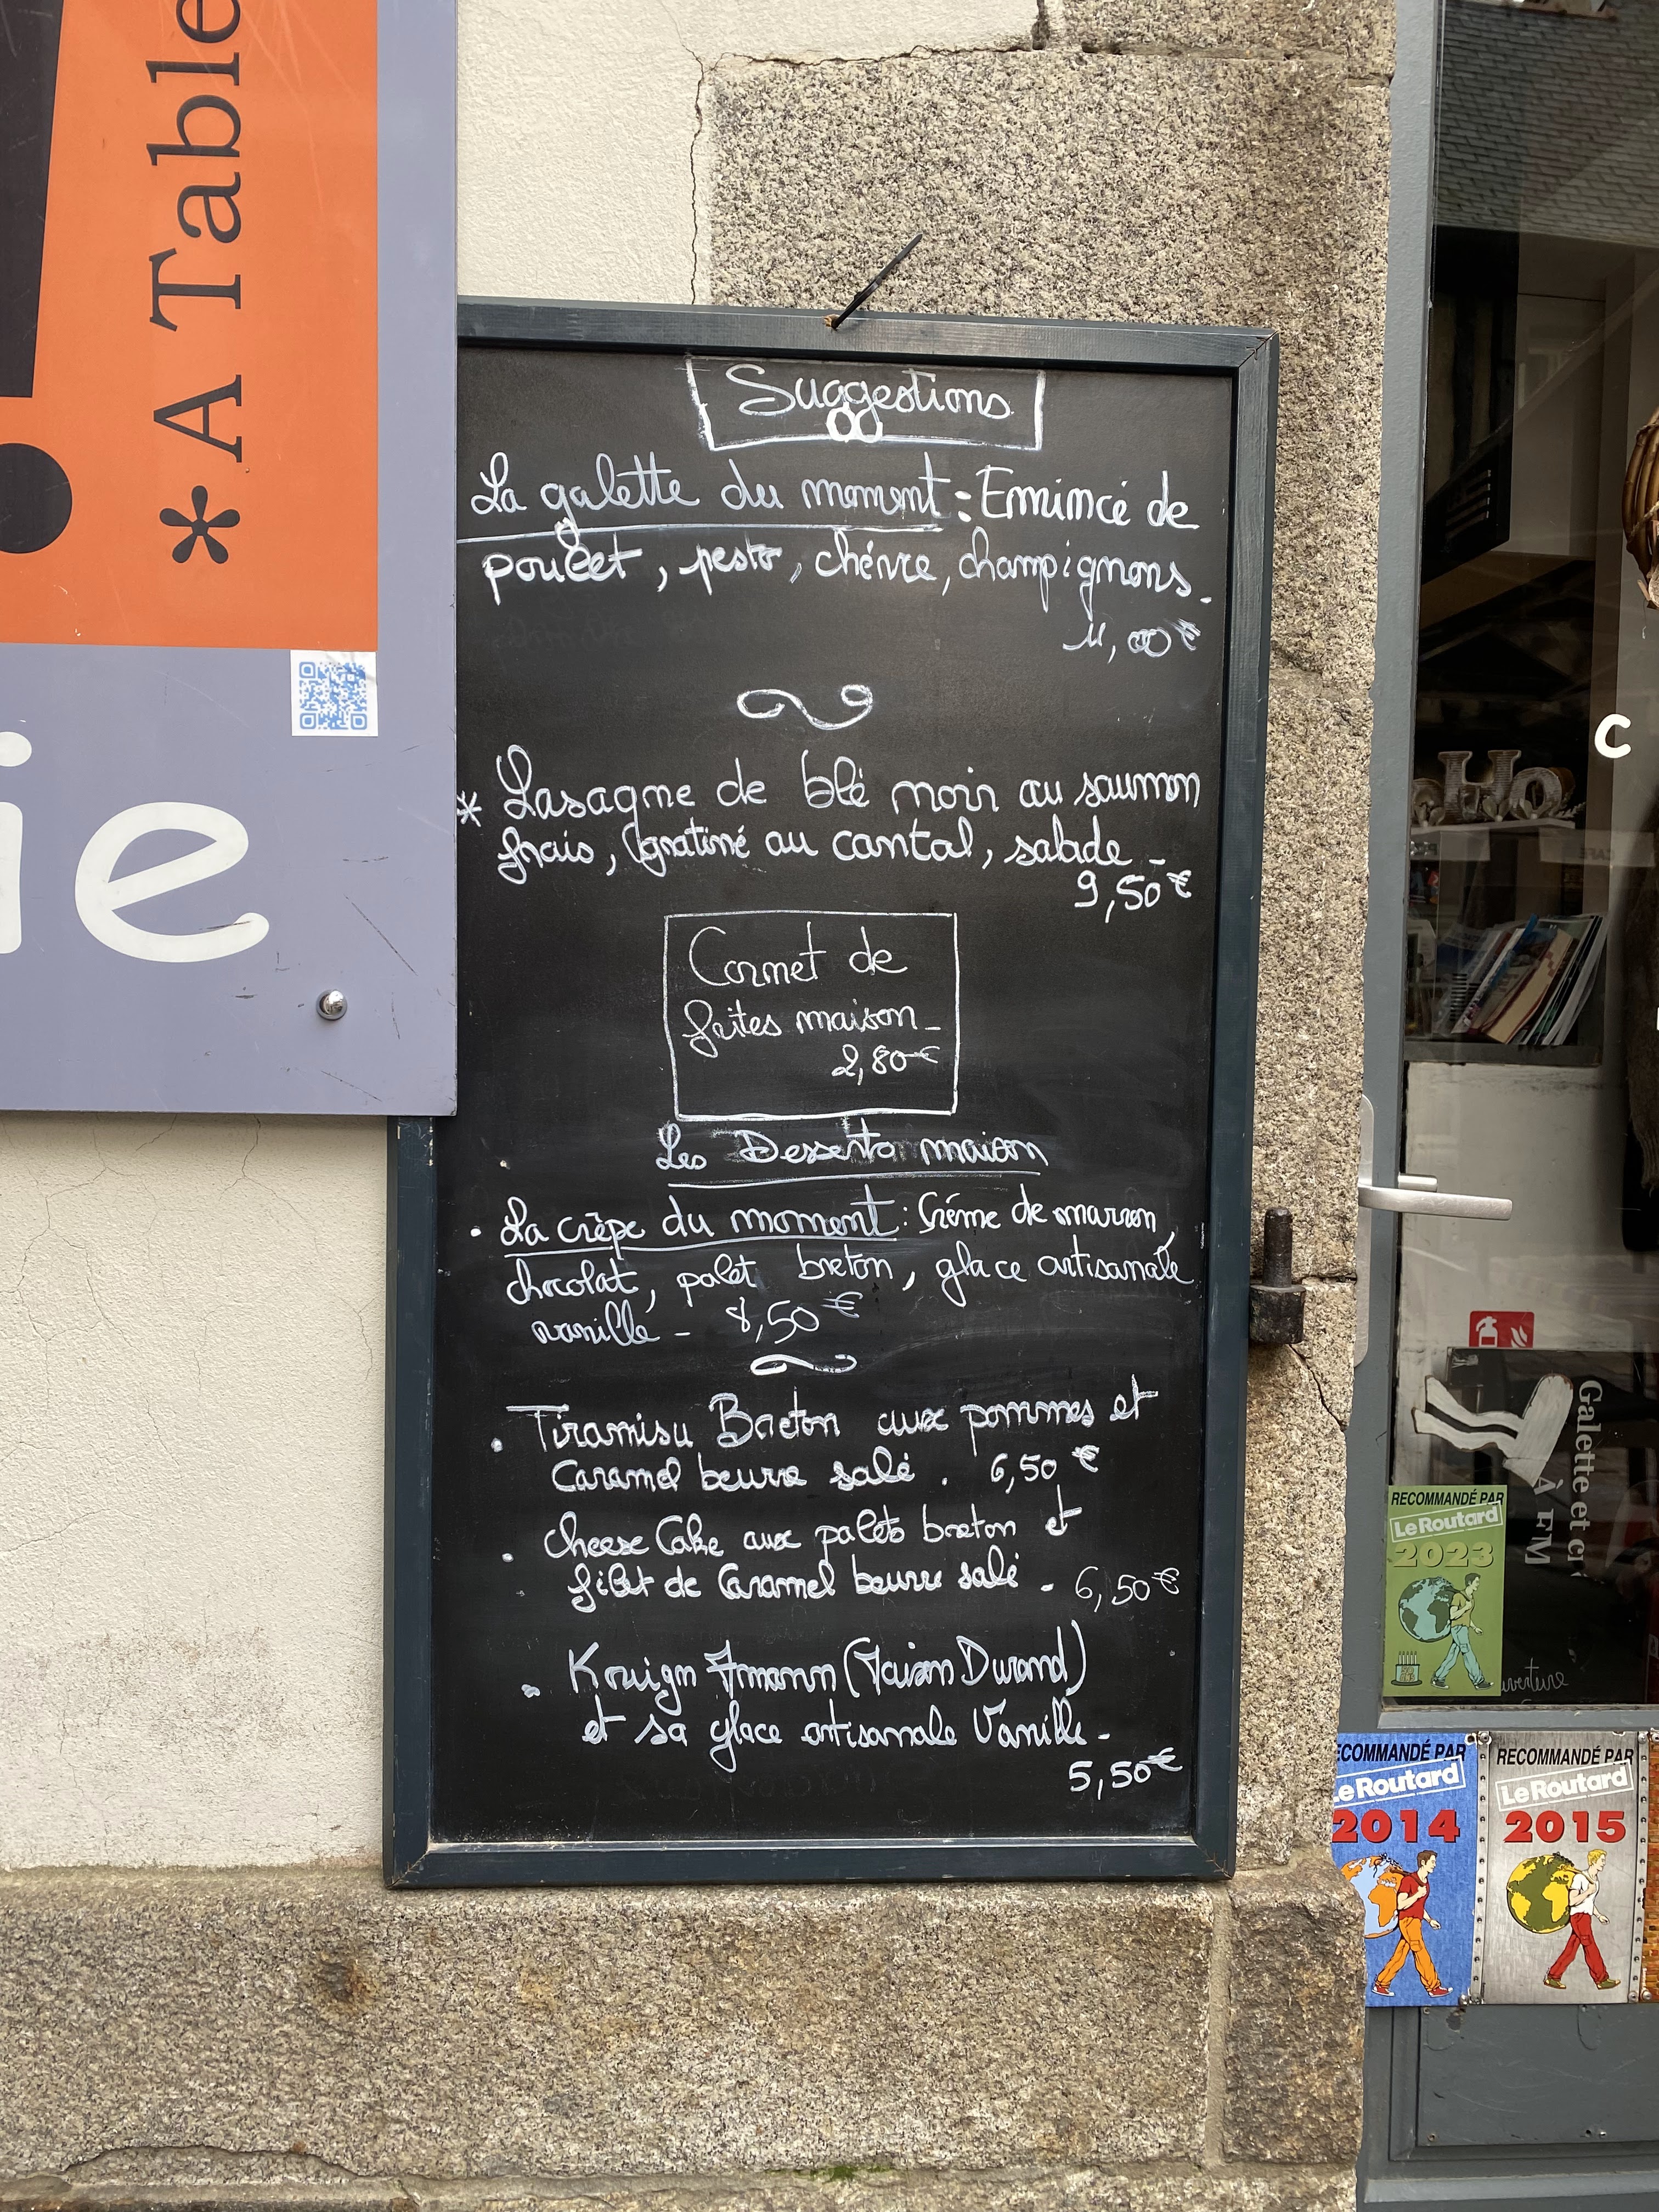 * A Table
ie
Suggestions
La galette du moment : Emincé de
poulet, pesto, chèvre, champignons.
11,00€
* Lasagne de blé noir au saumon
frais, gratiné au cantal, salade -
9,50€
Cornet de
frites maison -
2,80€
Les Desserts maison
. La crêpe du moment : Crème de marron,
chocolat, palet breton, glace artisanale
vanille - 8,50€
. Tiramisu Breton aux pommes et
Caramel beurre salé . 6,50€
. Cheese Cake aux palets breton et
filet de Caramel beurre salé - 6,50€
. Kouign Amann (Maison Durand)
et sa glace artisanale Vanille -
5,50€
C
HO
Galette et
RECOMMANDÉ PAR
Le Routard
2023
uverture
ECOMMANDÉ PAR
Le Routard
2014
RECOMMANDÉ PAR
Le Routard
2015